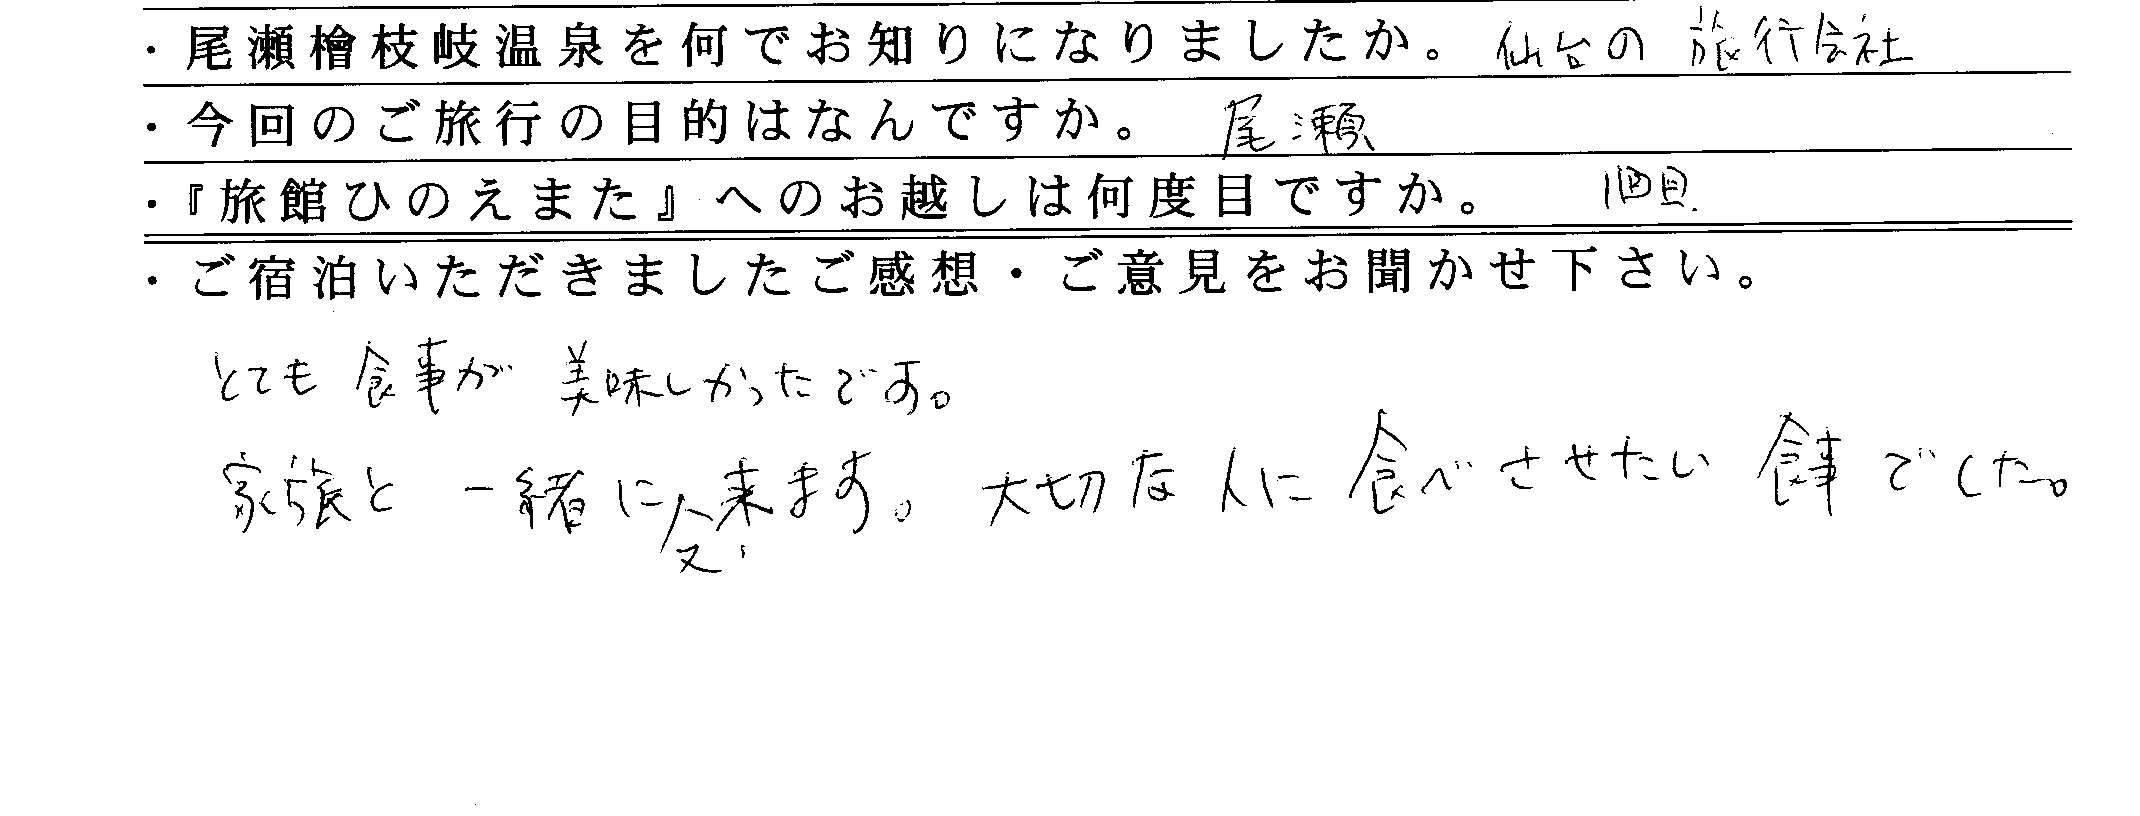 ・尾瀬檜枝岐温泉を何でお知りになりましたか。 仙台の 旅行会社
・今回のご旅行の目的はなんですか。 尾瀬
・『旅館ひのえまた』へのお越しは何度目ですか。 1回目
・ご宿泊いただきましたご感想・ご意見をお聞かせ下さい。
とても 食事が 美味しかったです。
家族と 一緒に又来ます。 大切な人に 食べさせたい 食事でした。